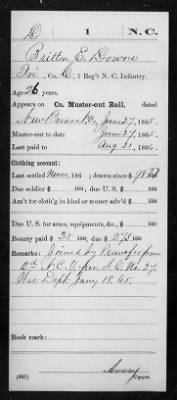 D | 1 | N.C.
Britton E. Downe
Pvt, Co. D, 1 Reg't N. C. Infantry.
Age 26 years.
Appears on Co. Muster-out Roll, dated
New Berne N.C., June 27, 1865.
Muster-out to date June 27, 1865.
Last paid to Aug 31, 1864.
Clothing account:
Last settled Never, 186 ; drawn since $
Due soldier $ 100; due U. S. $ 100
Am't for cloth'g in kind or money adv'd $ 100
Due U. S. for arms, equipments, &c., $ 100
Bounty paid $ 25 100; due $ 275 100
Remarks: Joined by transfer from
2d N.C.V. per S.O. No. 27
War Dept. Jany 18. 65.
Book mark:
Avery
(861) Copyist.